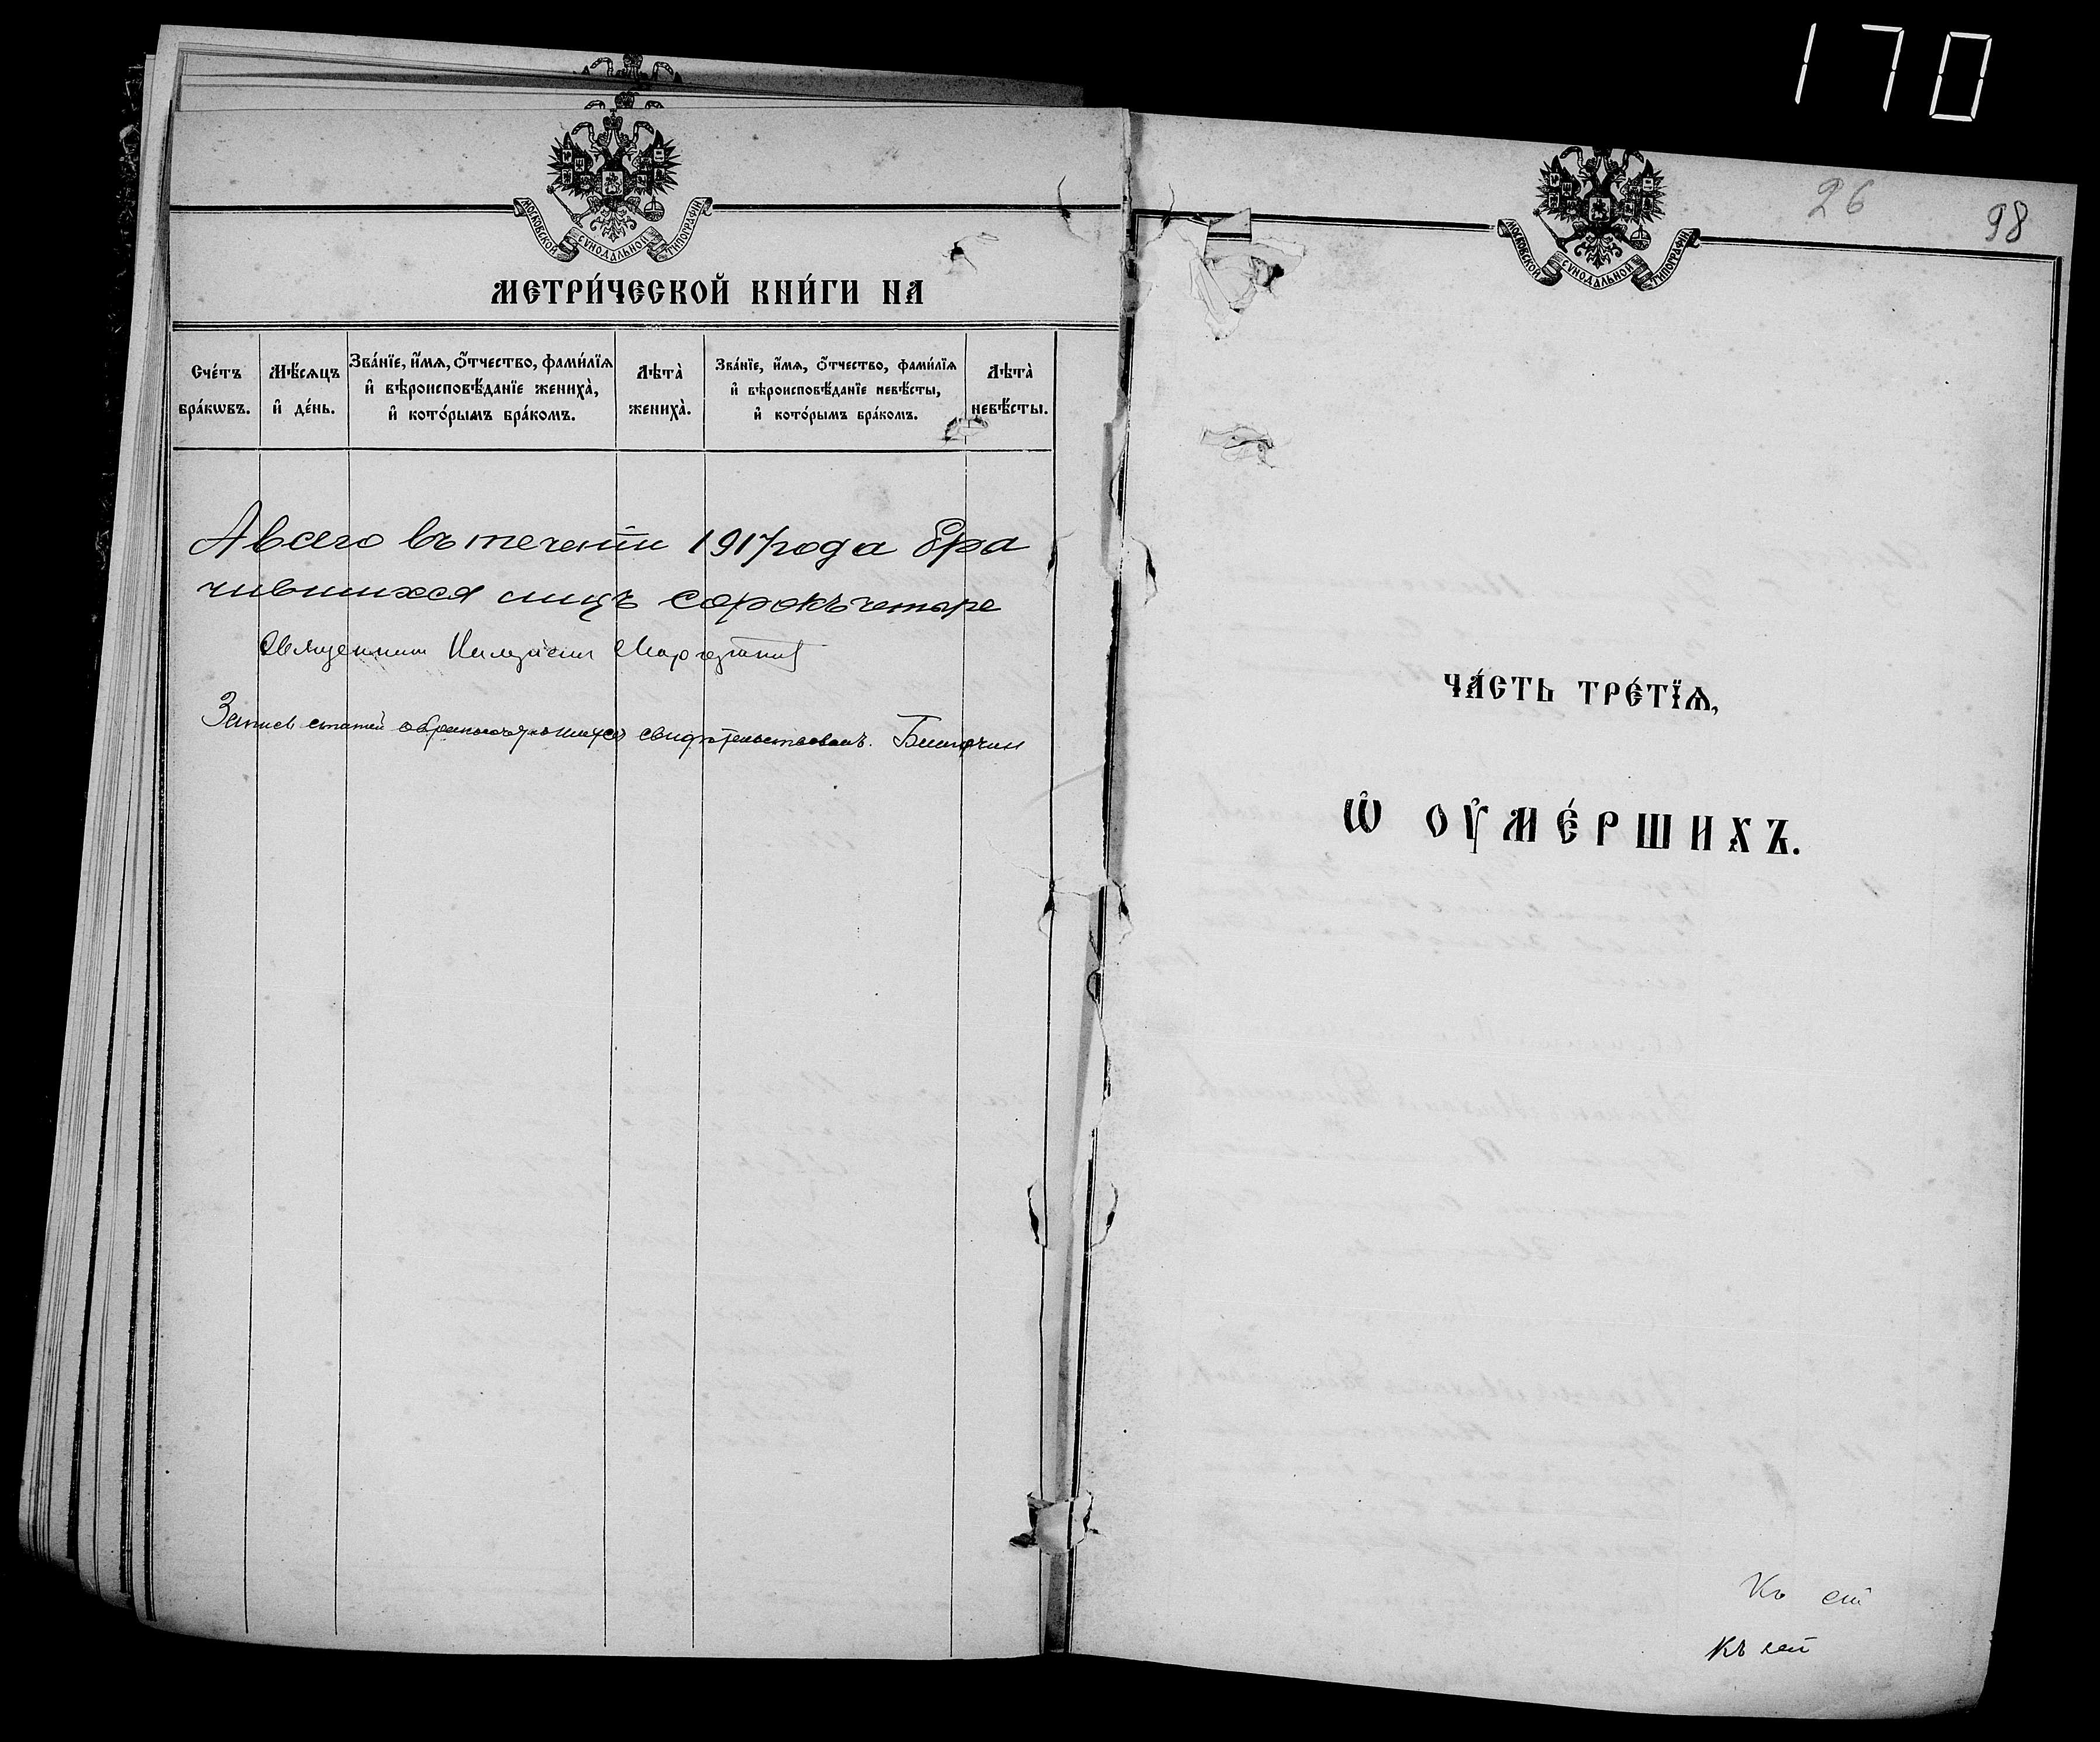 170
МОСКОВСКОЙ СѴНОДАЛЬНОЙ ТИПОГРАФІИ
МЕТРИ́ЧЕСКОЙ КНИ́ГИ НА
Сче́тъ бра́кѡвъ.
Мѣ́сяцъ и҆ де́нь.
Зва́нїе, и҆́мѧ, ѻ҆́тчество, фами́лїѧ
и҆ вѣроисповѣ́данїе жениха̀,
и҆ кото́рымъ бра́комъ.
Лѣта̀ жениха̀.
Зва́нїе, и҆́мѧ, ѻ҆́тчество, фами́лїѧ
и҆ вѣроисповѣ́данїе невѣ́сты,
и҆ кото́рымъ бра́комъ.
Лѣта̀ невѣ́сты.
А всего въ течении 1917 года бра
чившихся лицъ сорокъ четыре
Священник
Запись статей о бракосочетавшихся свидѣтельствовалъ.
МОСКОВСКОЙ СѴНОДАЛЬНОЙ ТИПОГРАФІИ
26
98
ЧА́СТЬ ТРЕ́ТЇѦ,
Ѡ҆ ОУ҆МЕ́РШИХЪ.
Къ
Къ